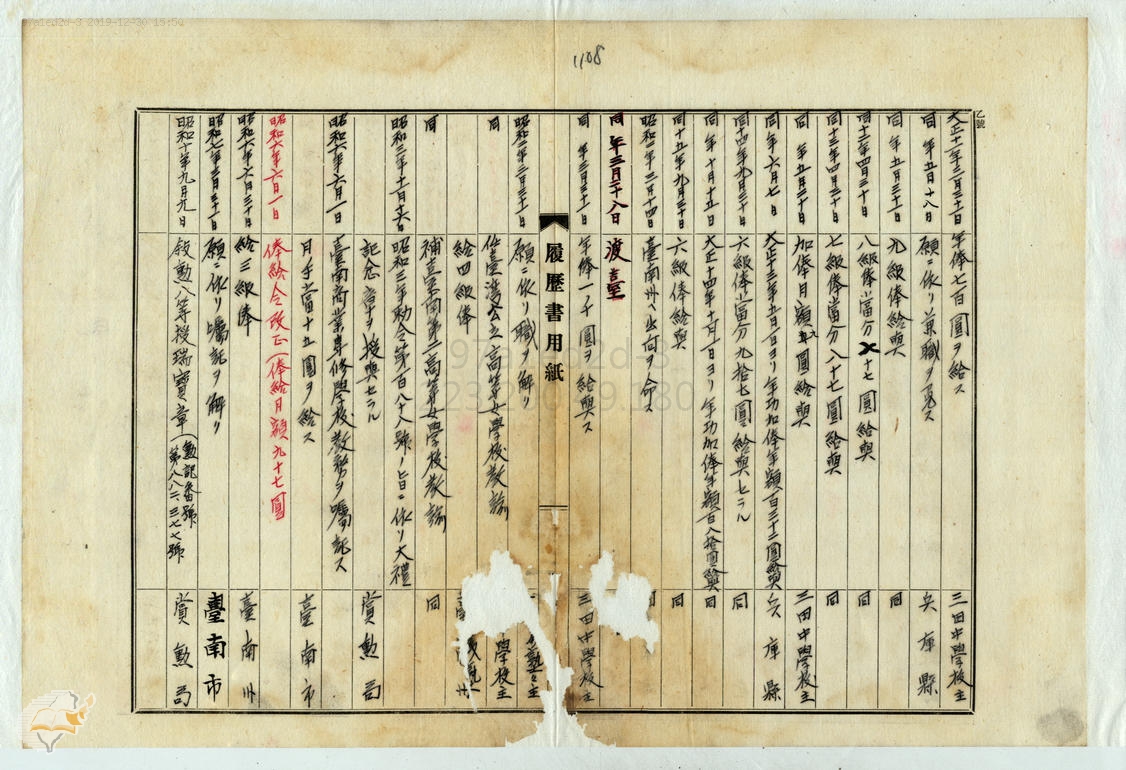 1108
乙號
大正十二年三月三十一日 年俸七百圓ヲ給ス 三田中學校主
同 年五月十八日 願ニ依リ兼職ヲ免ス 兵庫縣
同 年五月三十一日 九級俸給與 同
同十二年四月三十日 八級俸當分 十七圓給與 同
同十三年四月三十日 七級俸當分八十七圓給與 同
同 年五月三十日 加俸月額 圓給與 三田中學校主
同 年六月七日 大正十三年五月一日ヨリ年功加俸年額百三十二圓給與 兵庫縣
同十四年九月三十日 六級俸當分九拾七圓給與セラル 同
同 年十月十五日 大正十四年十月一日ヨリ年功加俸年額百八拾圓給與 同
同十五年九月三十日 六級俸給與 同
昭和二年三月十四日 臺南州ヘ出向ヲ命ス 同
同 年三月二十八日 渡臺
同 年三月三十一日 年俸一千 圓ヲ給與ス 三田中學校主
履歷書用紙
昭和二年三月三十一日 願ニ依リ職ヲ解ク
同 任臺灣公立高等女學校教諭 學校主
給四級俸
同 補臺南第二高等女學校教諭 同
昭和三年十一月十六日 昭和三年勅令第百八十八號ノ旨ニ依リ大禮
記念章ヲ授與セラル 賞勲局
昭和六年六月一日 臺南商業專修學校教務ヲ囑託ス
月手當十五圓ヲ給ス 臺南市
昭和六年六月一日 俸給令改正(俸給月額九十七圓
昭和六年六月三十日 給三級俸 臺南州
昭和七年三月三十一日 願ニ依リ囑託ヲ解ク 臺南市
昭和十年九月九日 敍勲八等授瑞寶章(勲記番號第八八二、三七七號 賞勲局